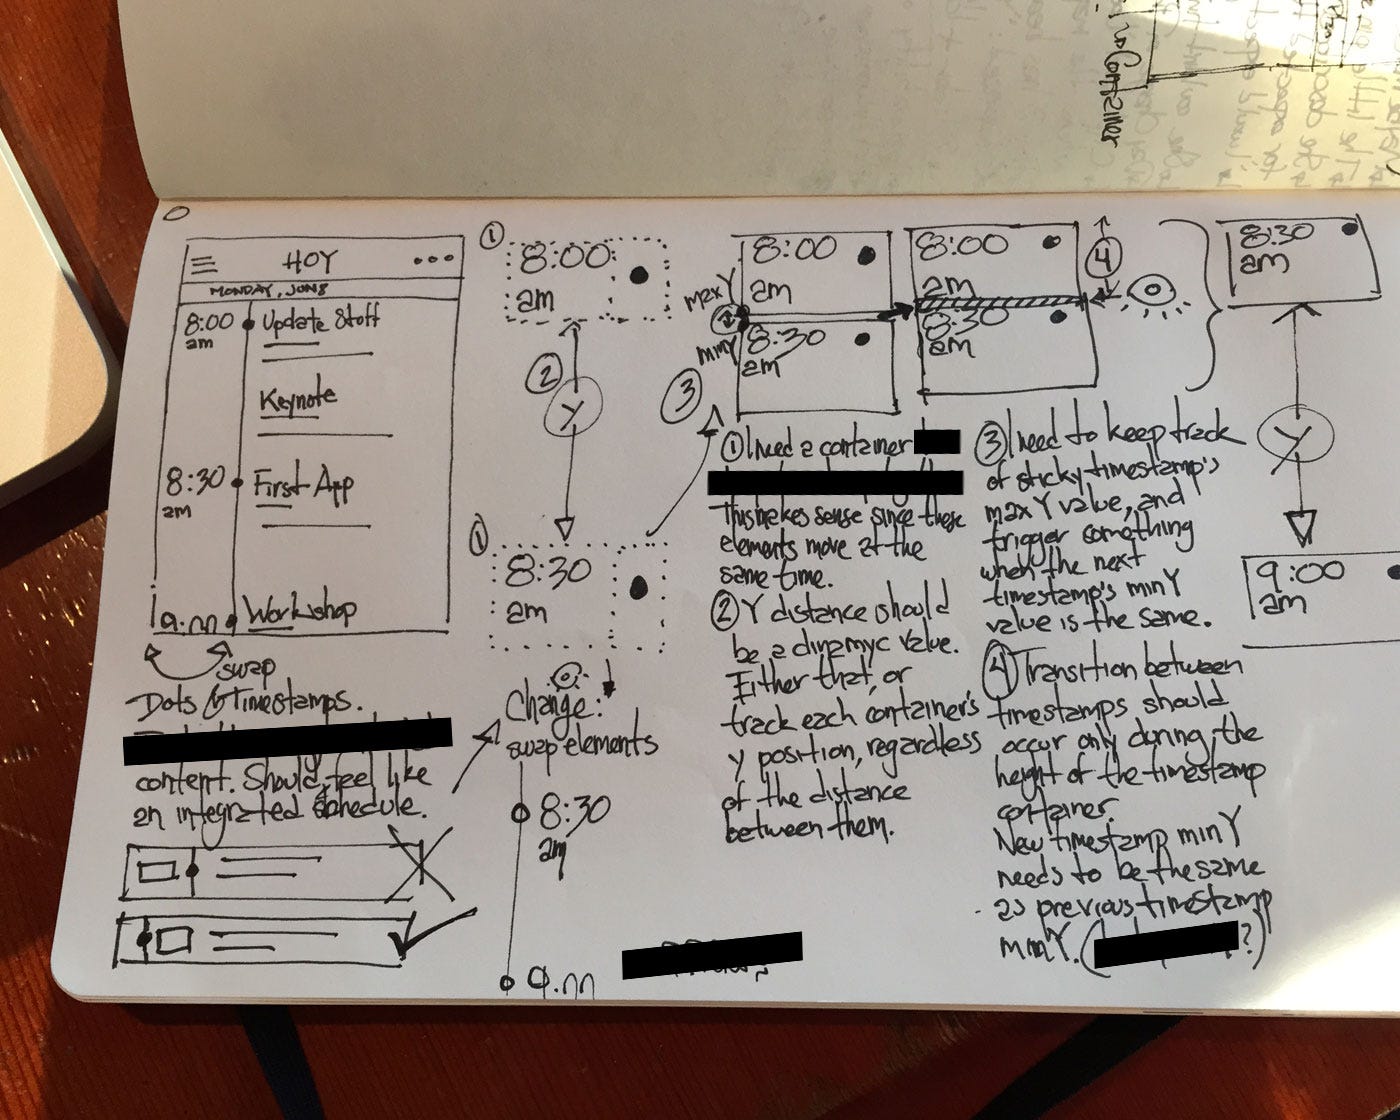 HOY
MONDAY, JUN 8
8:00
am
Update Stuff
Keynote
8:30
am
First App
9:00
Workshop
swap
Dots & Timestamps.
content. Should feel like
an integrated schedule.
1
8:00
am
2
Y
1
8:30
am
Change:
swap elements
8:30
am
9:00
3
max Y
min Y
8:00
am
8:30
am
8:00
am
8:30
am
4
8:30
am
Y
9:00
am
1 I need a container
This makes sense since these
elements move at the
same time.
2 Y distance should
be a dinamyc value.
Either that, or
track each container's
y position, regardless
of the distance
between them.
3 I need to keep track
of sticky timestamp's
max Y value, and
trigger something
when the next
timestamp's min Y
value is the same.
4 Transition between
timestamps should
occur only during the
height of the timestamp
container.
New timestamp min Y
needs to be the same
as previous timestamp
min Y. ( ?)
Container